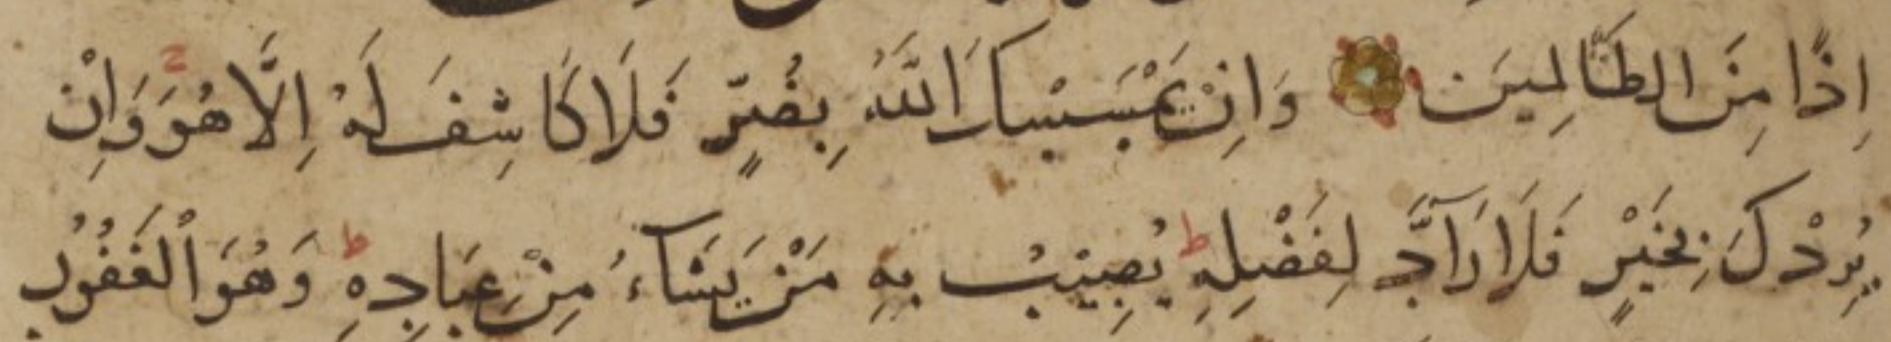 اِذًا مِنَ الظَّالِمِينَ وَاِنْ يَمْسَسْكَ اللَّهُ بِضُرٍّ فَلَا كَاشِفَ لَهُ اِلَّا هُوَ ۚ وَاِنْ
يُرِدْكَ بِخَيْرٍ فَلَا رَآدَّ لِفَضْلِهِ ط يُصِيبُ بِهِ مَنْ يَشَآءُ مِنْ عِبَادِهِ ط وَهُوَ الْغَفُورُ